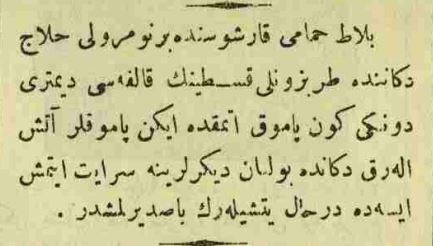 بلاط حمامی قارشوسنده بر نومرولی حلاج
دكاننده طربزونلی قسطینك قالفه‌سی دیمتری
دونكی كون پاموق اتمقده ایكن پاموقلر آتش
اله‌رق دكانده بولنان دیكرلرینه سرایت ایتمش
ایسه‌ده درحال یتشیله‌رك باصدیرلمشدر .